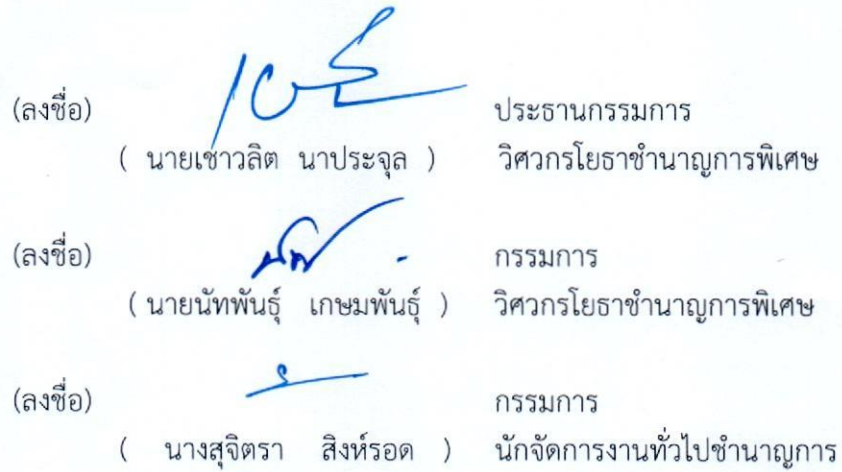 (ลงชื่อ) ประธานกรรมการ
( นายเชาวลิต นาประจุล ) วิศวกรโยธาชำนาญการพิเศษ
(ลงชื่อ) กรรมการ
( นายนัทพันธุ์ เกษมพันธุ์ ) วิศวกรโยธาชำนาญการพิเศษ
(ลงชื่อ) กรรมการ
( นางสุจิตรา สิงห์รอด ) นักจัดการงานทั่วไปชำนาญการ